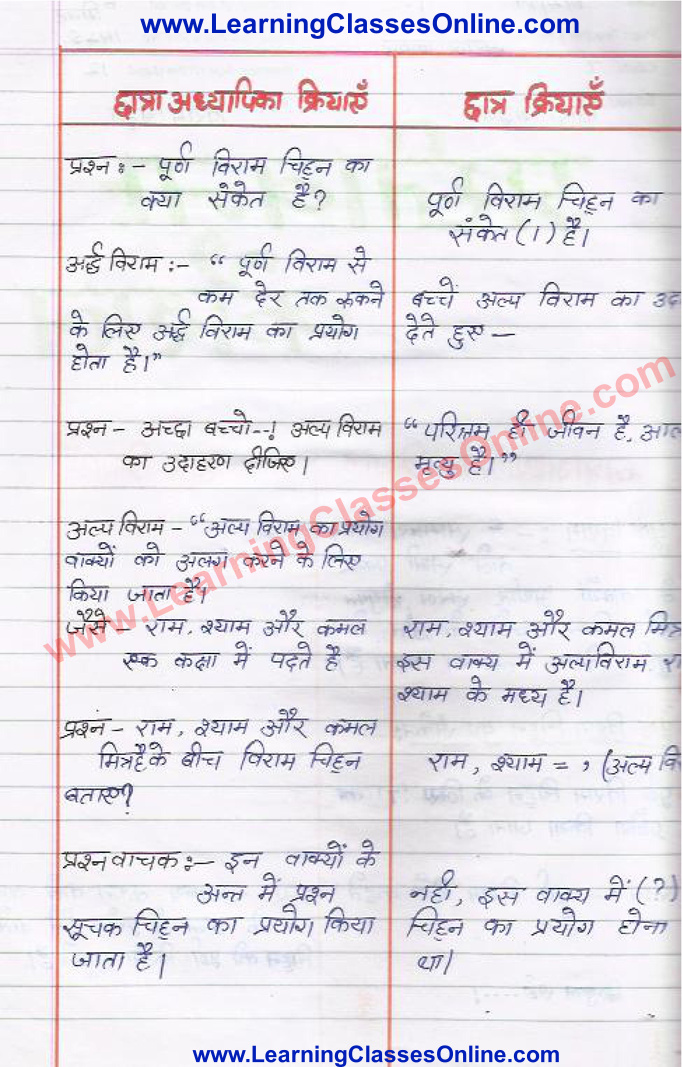 www.LearningClassesOnline.com
छात्रा अध्यापिका क्रियाएँ
छात्र क्रियाएँ
प्रश्न :- पूर्ण विराम चिह्न का
क्या संकेत है?
पूर्ण विराम चिह्न का
संकेत (।) है।
अर्द्ध विराम :- “ पूर्ण विराम से
कम देर तक रुकने
के लिए अर्द्ध विराम का प्रयोग
होता है।”
बच्चें अल्प विराम का उदा
देते हुए –
प्रश्न - अच्छा बच्चो--! अल्प विराम
का उदाहरण दीजिए।
“परिश्रम ही जीवन है, आल
मृत्यु है।”
अल्प विराम - “अल्प विराम का प्रयोग
वाक्यों को अलग करने के लिए
किया जाता है।
जैसे - राम, श्याम और कमल
एक कक्षा में पढ़ते है
राम, श्याम और कमल मित्र
इस वाक्य में अल्पविराम रा
श्याम के मध्य है।
प्रश्न - राम, श्याम और कमल
मित्र है के बीच विराम चिह्न
बताए?
राम, श्याम = , (अल्प वि
प्रश्नवाचक :- इन वाक्यों के
अन्त में प्रश्न
सूचक चिह्न का प्रयोग किया
जाता है।
नही, इस वाक्य में (?)
चिह्न का प्रयोग होना
था।
www.LearningClassesOnline.com
www.LearningClassesOnline.com